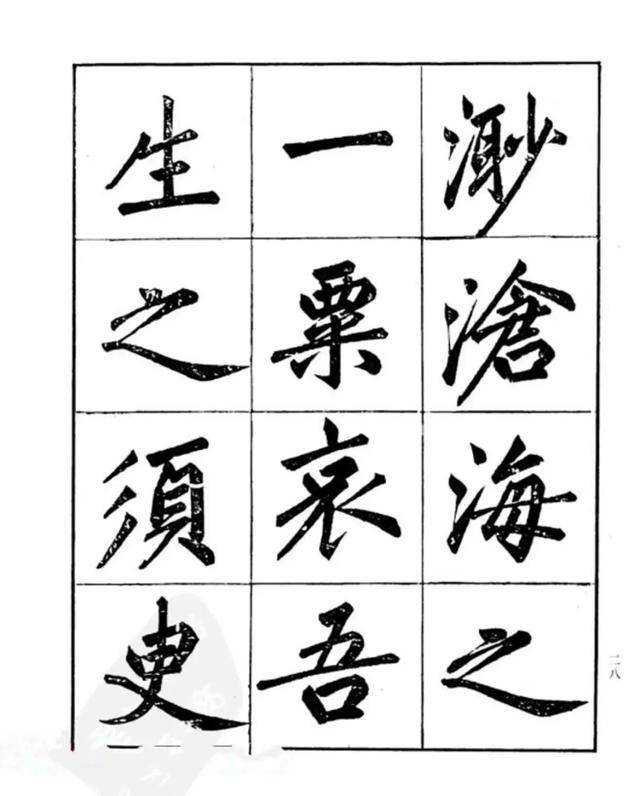 渺滄海之
一粟哀吾
生之須臾
二八